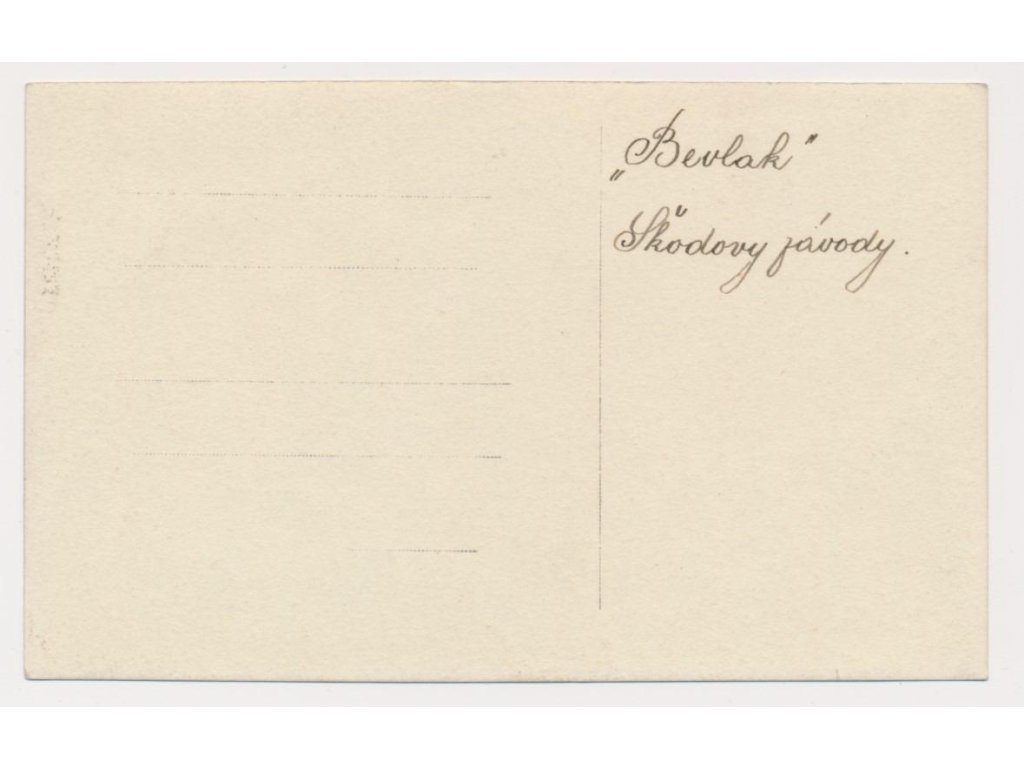 „Bevlak"
Škodovy závody.